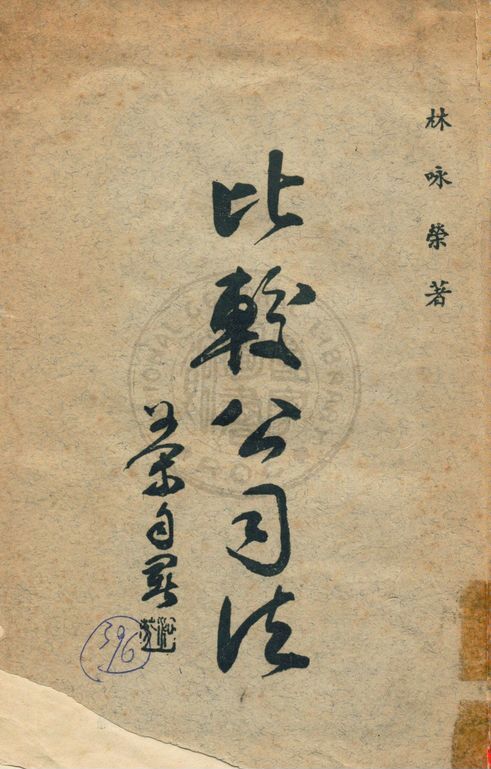 林咏榮著
比較公司法
榮自署
396